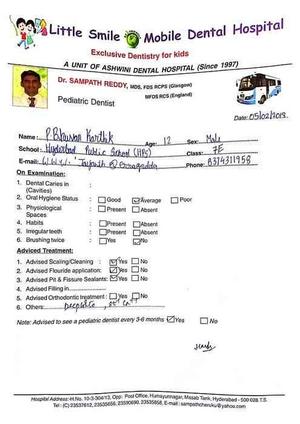 Little Smile Mobile Dental Hospital
Exclusive Dentistry for kids
A UNIT OF ASHWINI DENTAL HOSPITAL (Since 1997)
Dr. SAMPATH REDDY, MDS, FDS RCPS (Glasgow)
MFDS RCS (England)
Pediatric Dentist
Date: 05/02/2013.
Name: P. Karthik Age: 12 Sex: Male
School: Hyderabad Public School (HPS) Class: 7E
E-mail: Phone: 8374311958
On Examination:
1. Dental Caries in (Cavities)
2. Oral Hygiene Status : Good Average Poor
3. Physiological Spaces : Present Absent
4. Habits : Present Absent
5. Irregular teeth : Present Absent
6. Brushing twice : Yes No
Adviced Treatment:
1. Advised Scaling/Cleaning : Yes No
2. Advised Flouride application: Yes No
3. Advised Pit & Fissure Sealants: Yes No
4. Advised Filling in
5. Advised Orthodontic Treatment : Yes No
6. Others:
Note: Advised to see a pediatric dentist every 3-6 months Yes No
Hospital Address:-H.No. 10-3-304/13, Opp: Post Office, Humayunnagar, Masab Tank, Hyderabad - 500 028 T.S.
Tel: (C) 23537612, 23535656, 23590690, 23535858, E-mail : sampathchenku@yahoo.com